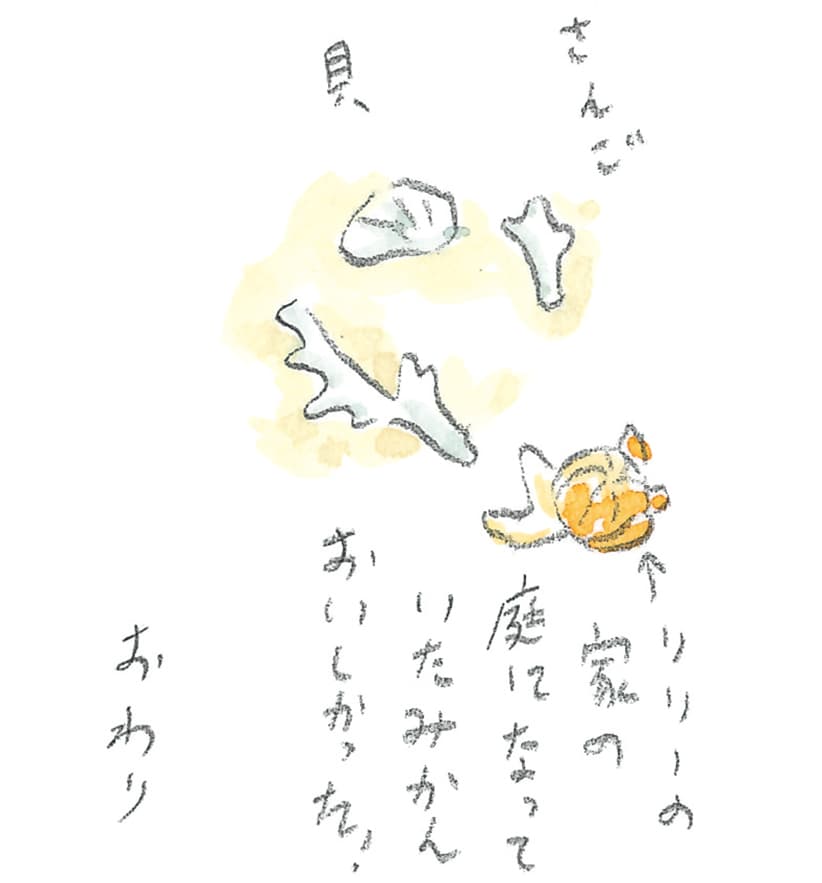 さんご
貝
リリーの
家の
庭になって
いたみかん
おいしかった!
おわり